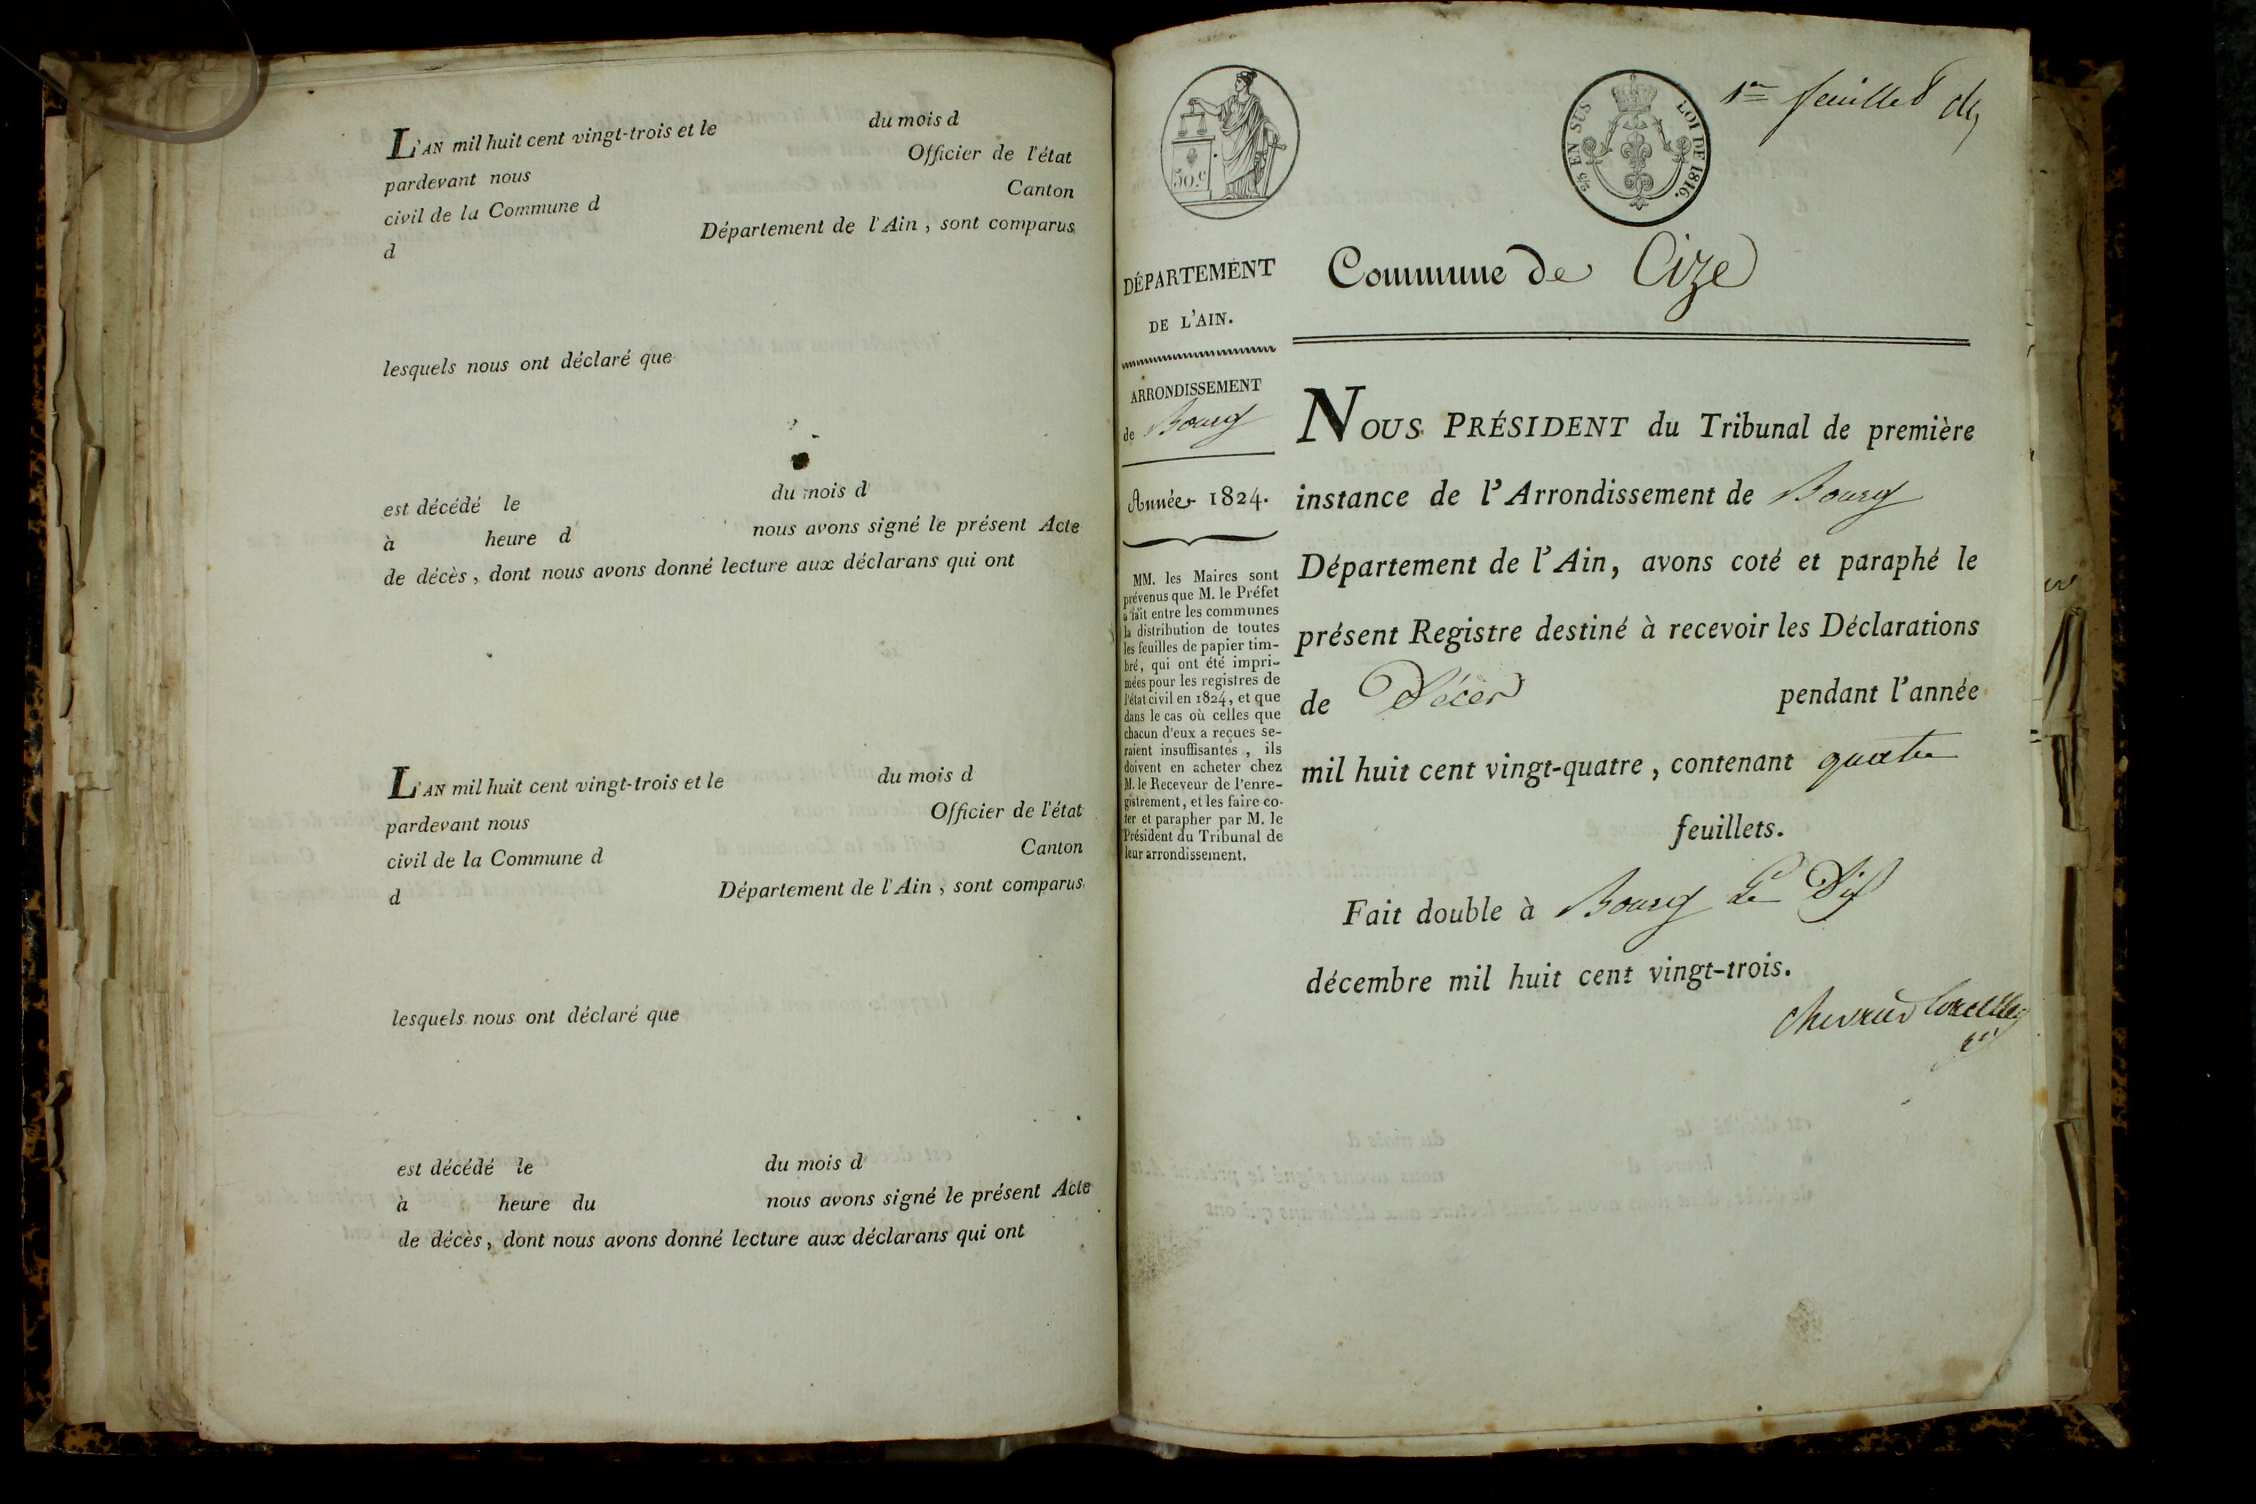 L'AN mil huit cent vingt-trois et le du mois d
pardevant nous Officier de l'état
civil de la Commune d Canton
d Département de l'Ain, sont comparus
lesquels nous ont déclaré que
est décédé le du mois d
à heure d nous avons signé le présent Acte
de décès, dont nous avons donné lecture aux déclarans qui ont
L'AN mil huit cent vingt-trois et le du mois d
pardevant nous Officier de l'état
civil de la Commune d Canton
d Département de l'Ain, sont comparus
lesquels nous ont déclaré que
est décédé le du mois d
à heure du nous avons signé le présent Acte
de décès, dont nous avons donné lecture aux déclarans qui ont
50 c
5/2 EN SUS LOI DE 1816.
1er feuillet
DÉPARTEMENT
DE L'AIN.
ARRONDISSEMENT
de Bourg
Année 1824.
MM. les Maires sont
prévenus que M. le Préfet
a fait entre les communes
la distribution de toutes
les feuilles de papier tim-
bré, qui ont été impri-
mées pour les registres de
l'état civil en 1824, et que
dans le cas où celles que
chacun d'eux a reçues se-
raient insuffisantes, ils
doivent en acheter chez
M. le Receveur de l'enre-
gistrement, et les faire co-
ter et parapher par M. le
Président du Tribunal de
leur arrondissement.
Commune de Cize
NOUS PRÉSIDENT du Tribunal de première
instance de l'Arrondissement de Bourg
Département de l'Ain, avons coté et paraphé le
présent Registre destiné à recevoir les Déclarations
de Décès pendant l'année
mil huit cent vingt-quatre, contenant quatre
feuillets.
Fait double à Bourg Le Dix
décembre mil huit cent vingt-trois.